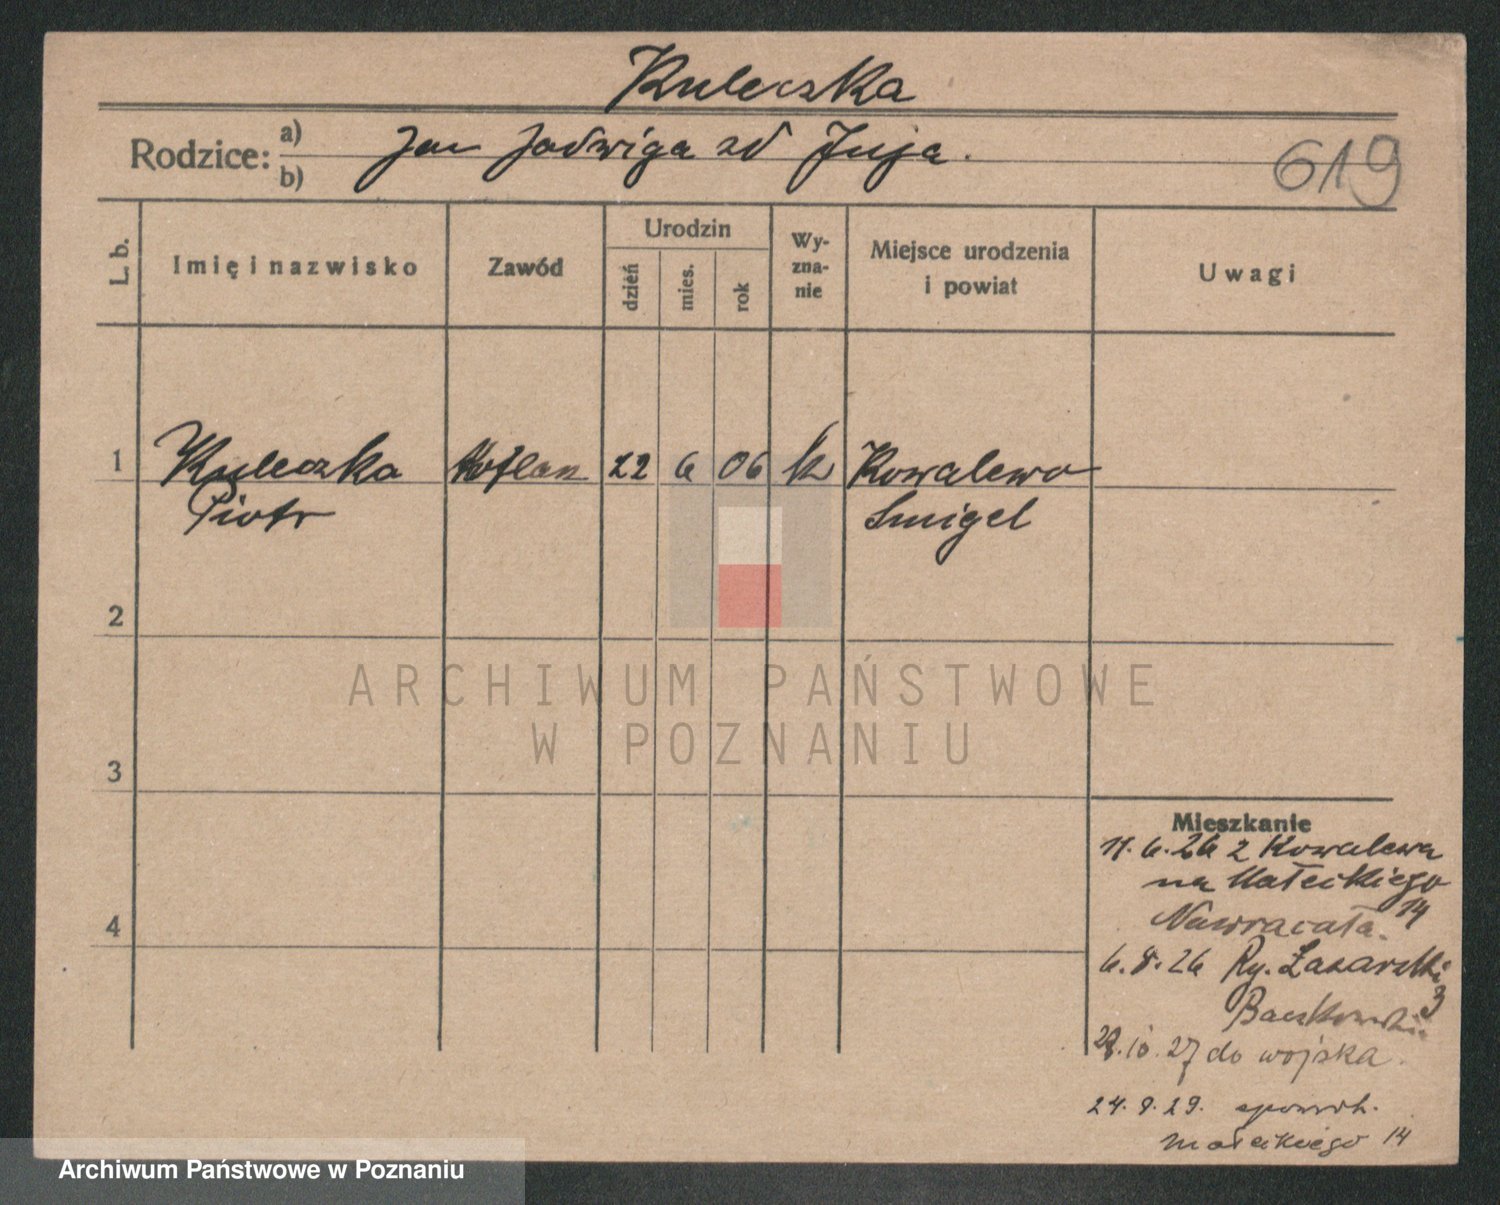 Kuleczka
Rodzice: a) b)
Jan Jadwiga zd Juja.
619
L. b.
Imię i nazwisko
Zawód
Urodzin
dzień
mies.
rok
Wy-
zna-
nie
Miejsce urodzenia
i powiat
Uwagi
1
Kuleczka
Piotr
22
6
06
k
Kowalewo
Smigel
2
3
4
ARCHIWUM PAŃSTWOWE
W POZNANIU
Mieszkanie
11.6.26 z Kowalewa
na Małeckiego
14
Nawracała.
6.8.26 Ry. Łazarski
3
28.10.27 do wojska.
24.9.29.
Małeckiego 14
Archiwum Państwowe w Poznaniu